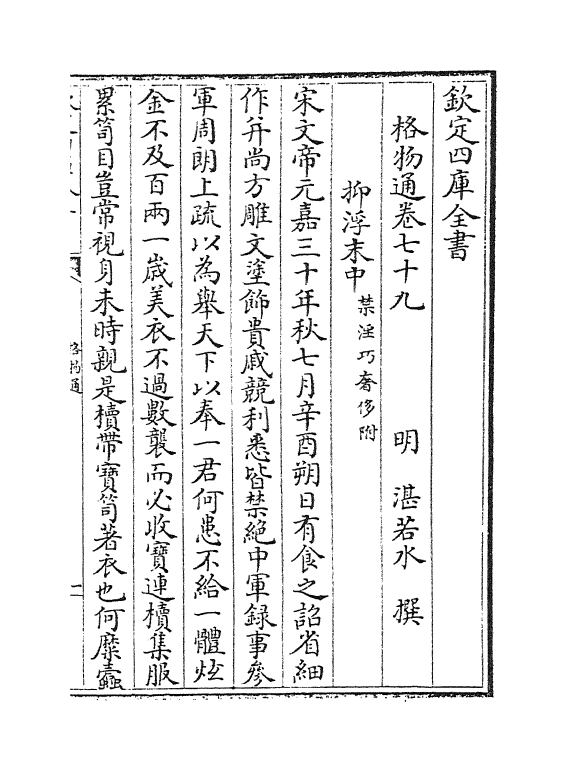 欽定四庫全書
格物通卷七十九　明　湛若水　撰
抑浮末中禁淫巧奢侈附
宋文帝元嘉三十年秋七月辛酉朔日有食之詔省細
作并尚方雕文塗飾貴戚競利悉皆禁絶中軍録事參
軍周朗上疏以為舉天下以奉一君何患不給一體炫
金不及百兩一嵗美衣不過數襲而必收寶連櫝集服
累笥目豈常視身未時親是櫝帶寶笥著衣也何糜蠧
格物通